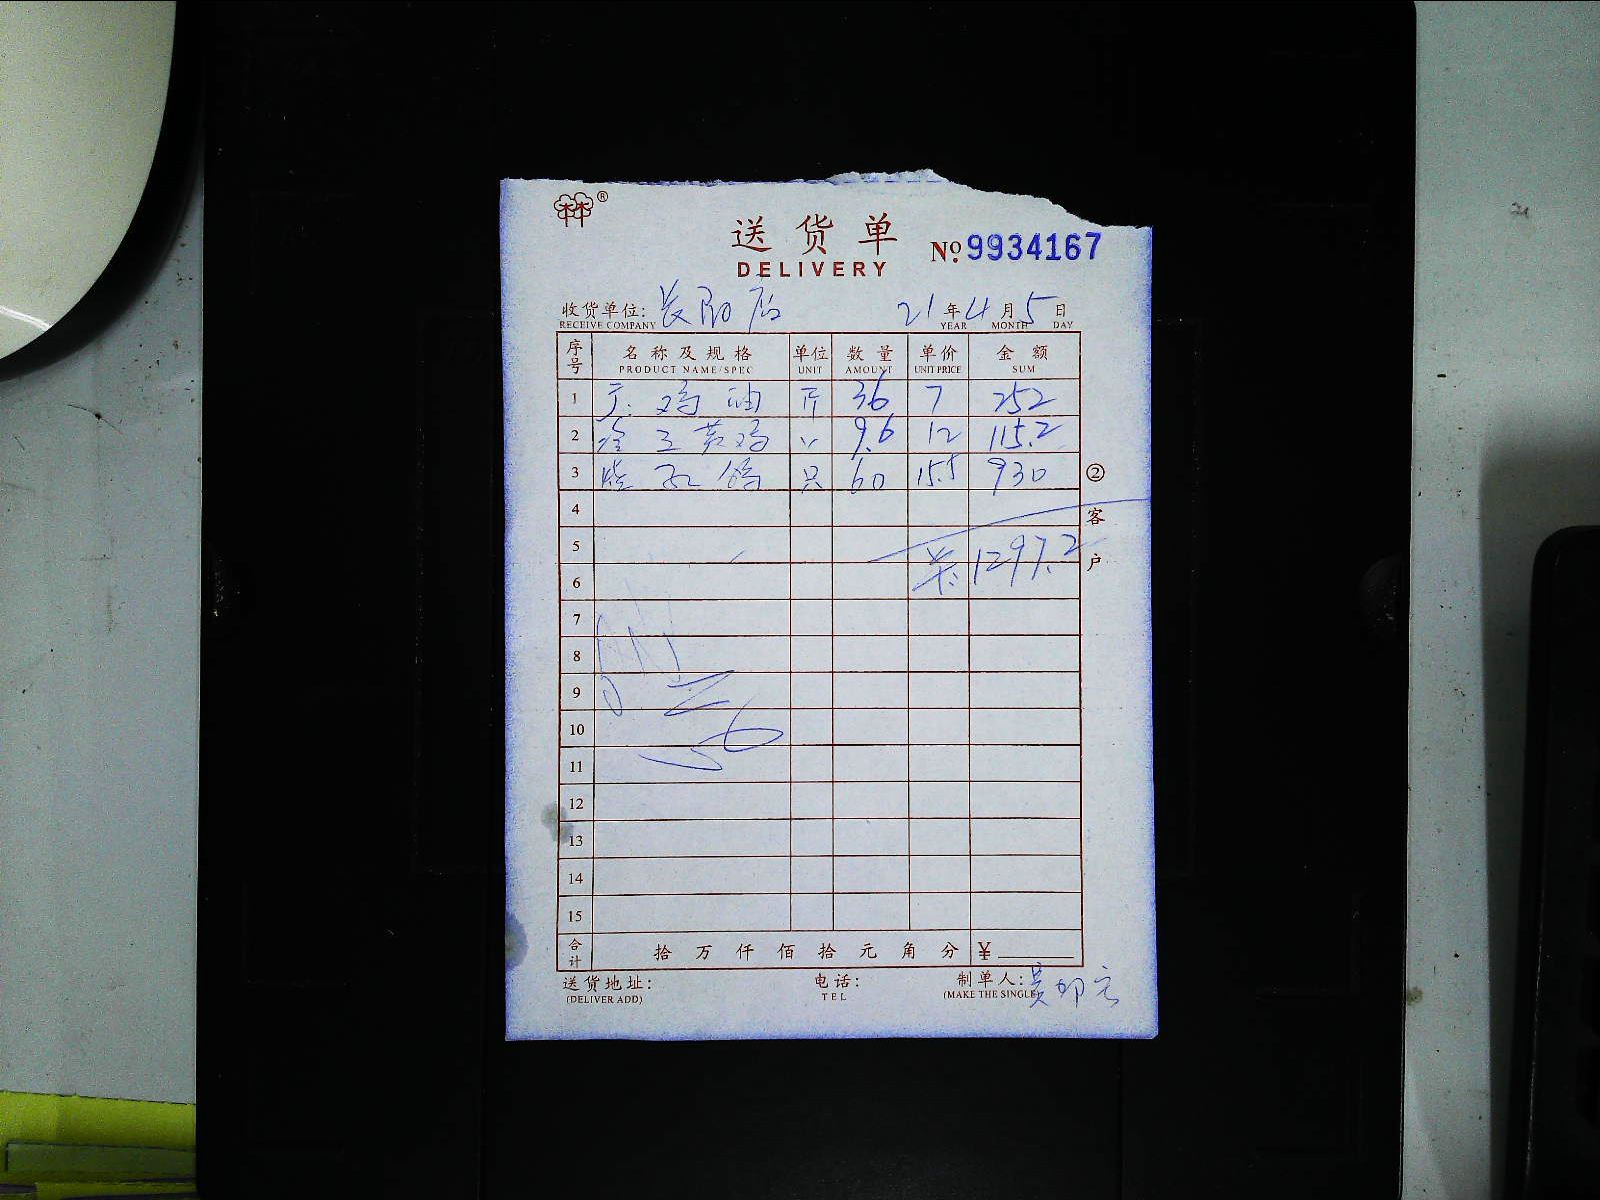 林®
送货单
DELIVERY
No. 9934167
收货单位: 长阳店 21年4月5日
RECEIVE COMPANY YEAR MONTH DAY
序号 名称及规格 单位 数量 单价 金额
PRODUCT NAME/SPEC UNIT AMOUNT UNIT PRICE SUM
1 鸡油 斤 36 7 252
2 鸡 〃 9.6 12 115.2
3 只 60 15.5 930
② 客户
4
5
共 1297.2
6
7
8
9
10
11
12
13
14
15
合计 拾万仟佰拾元角分 ¥
送货地址: 电话: 制单人:
(DELIVER ADD) TEL (MAKE THE SINGLE)